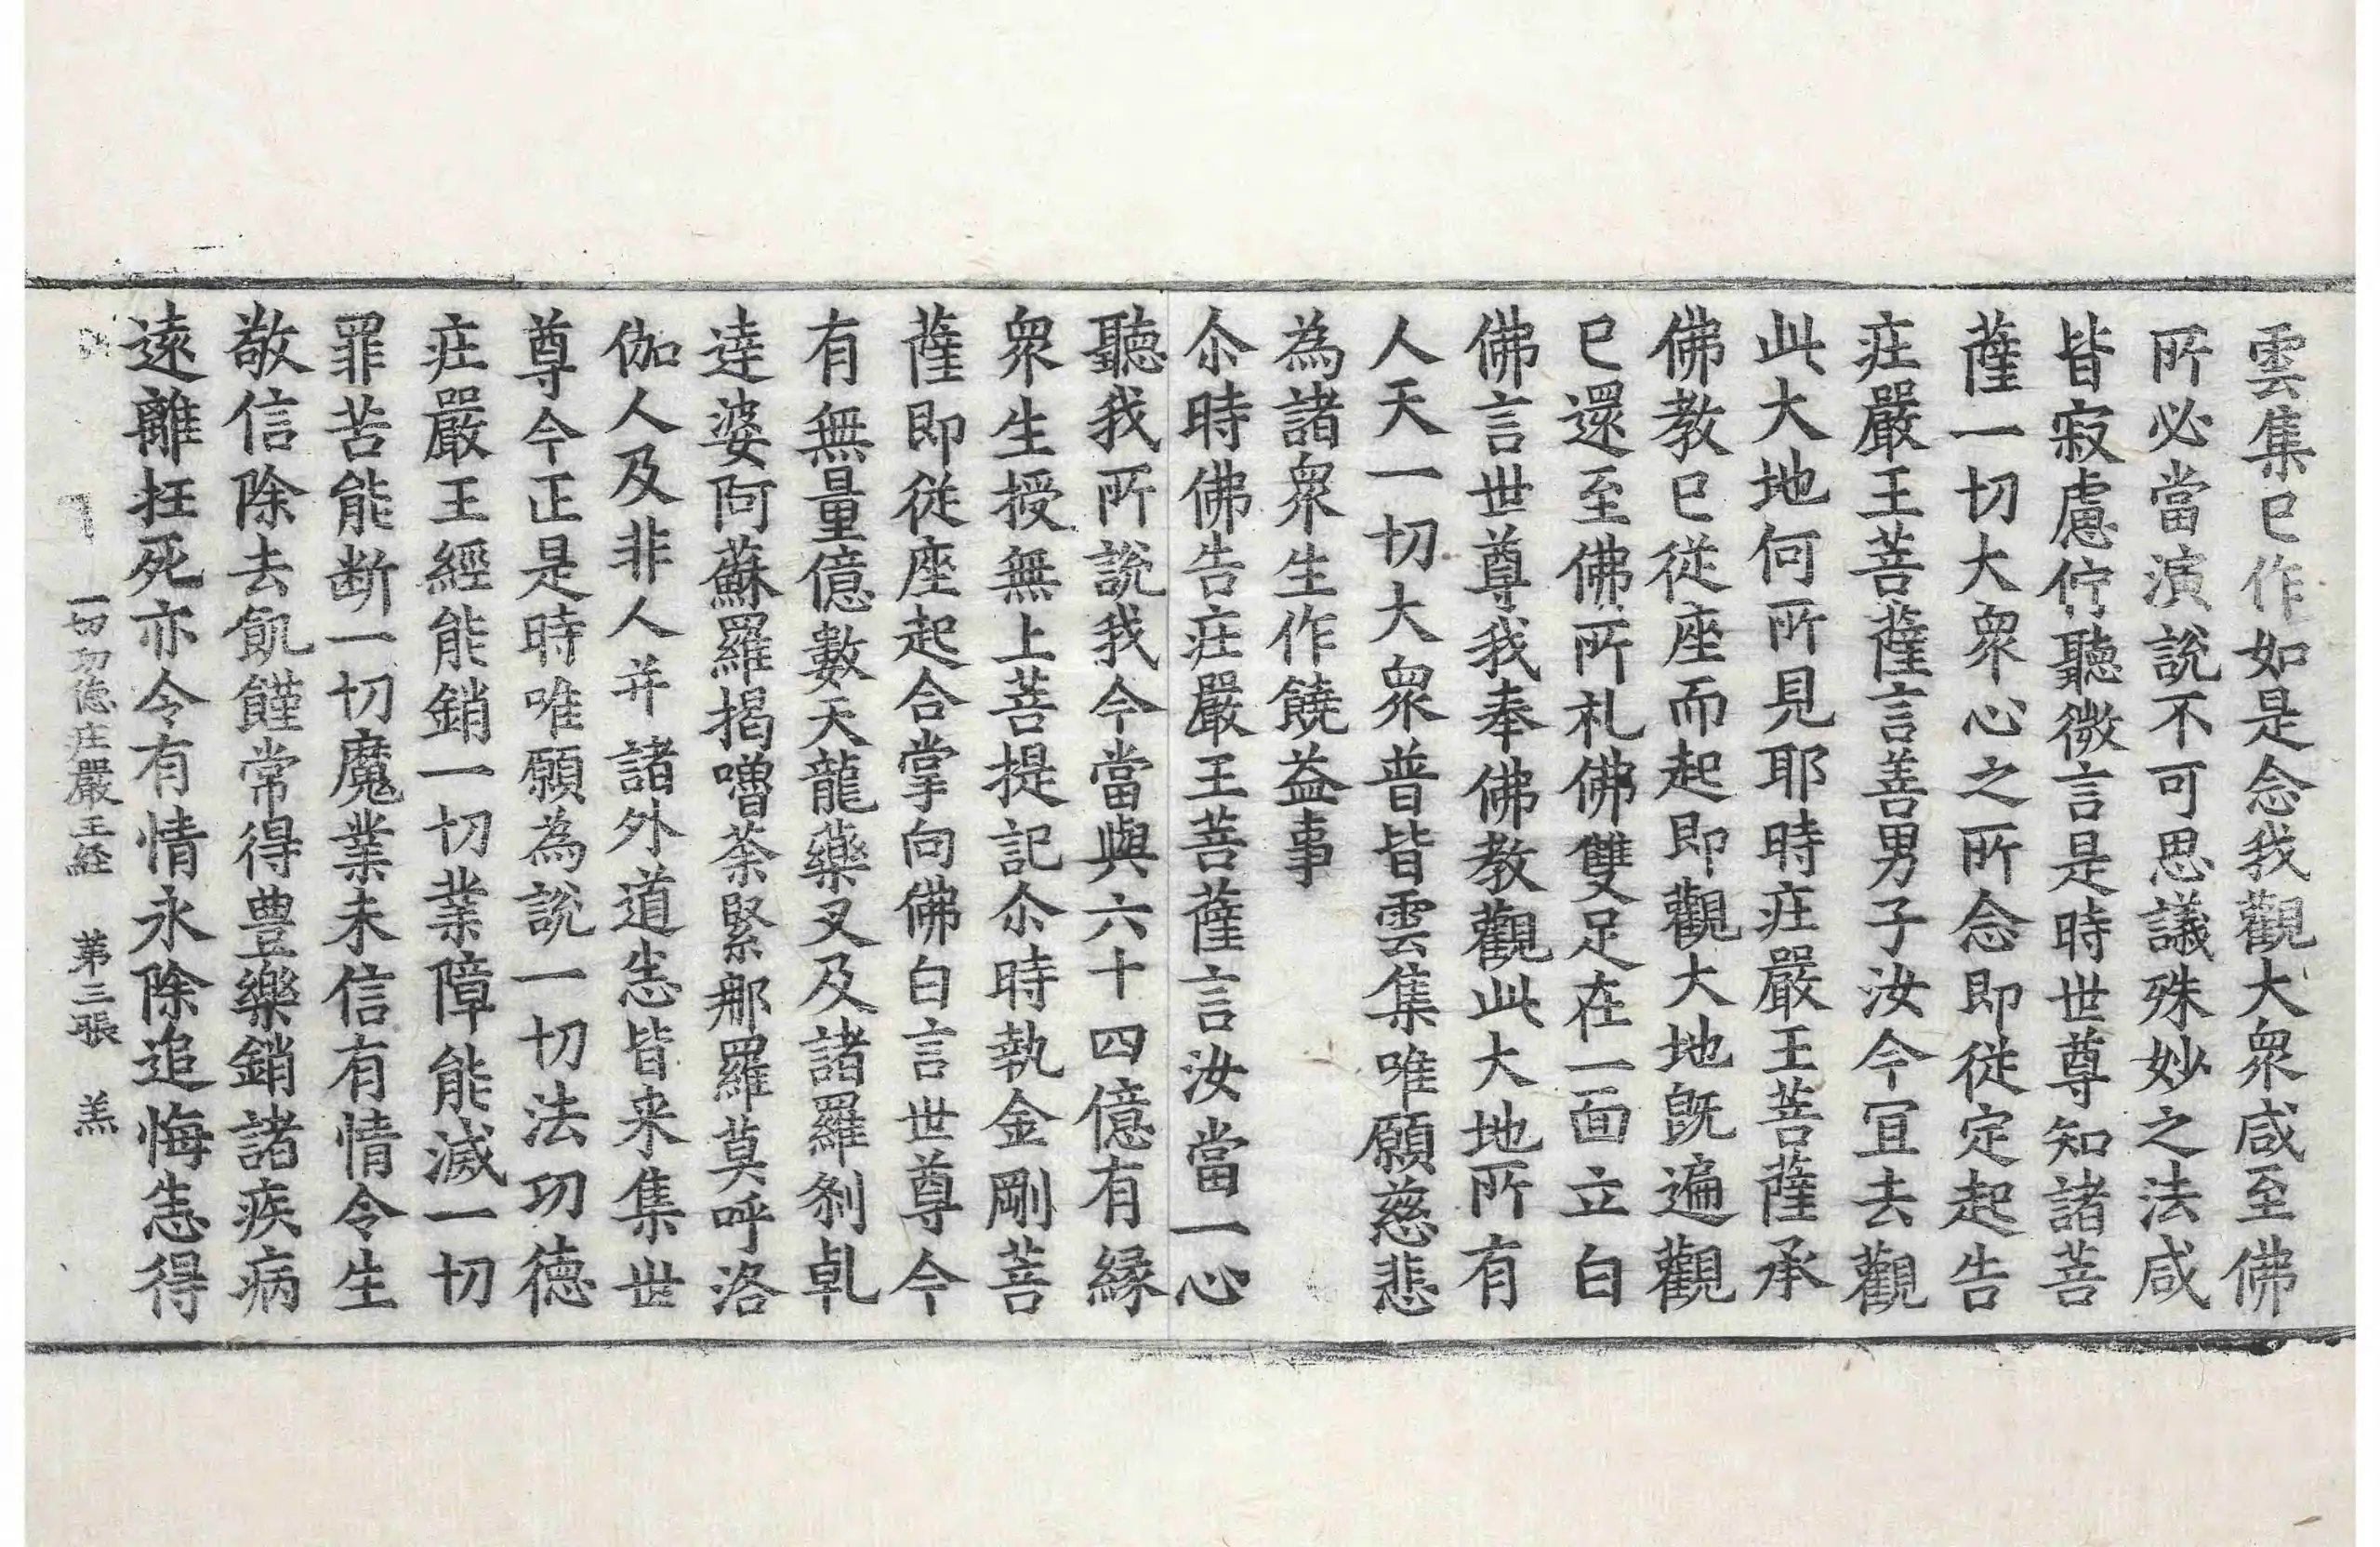 雲集已作如是念我觀大衆咸至佛
所必當演說不可思議殊妙之法咸
皆寂慮佇聽微言是時世尊知諸菩
薩一切大衆心之所念即從定起告
庄嚴王菩薩言善男子汝今冝去觀
此大地何所見耶時庄嚴王菩薩承
佛教已從座而起即觀大地旣遍觀
已還至佛所礼佛雙足在一面立白
佛言世尊我奉佛教觀此大地所有
人天一切大衆普皆雲集唯願慈悲
為諸衆生作饒益事
尒時佛告庄嚴王菩薩言汝當一心
聽我所說我今當與六十四億有緣
衆生授無上菩提記尒時執金剛菩
薩即從座起合掌向佛白言世尊今
有無量億數天龍藥叉及諸羅剎乹
達婆阿蘇羅揭嚕荼緊那羅莫呼洛
伽人及非人并諸外道恙皆来集世
尊今正是時唯願為說一切法功德
庄嚴王經能銷一切業障能滅一切
罪苦能断一切魔業未信有情令生
敬信除去飢饉常得豊樂銷諸疾病
遠離抂死亦令有情永除追悔恙得
一切功德庄嚴王経 苐三張 羔